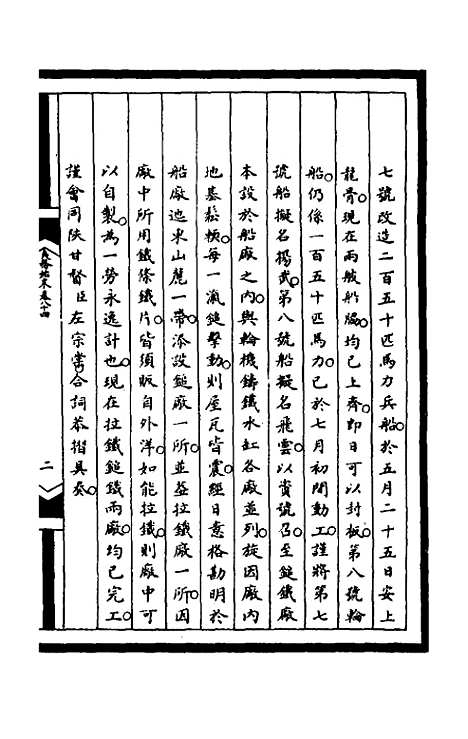 七號改造二百五十匹馬力兵船於五月二十五日安上
龍骨現在兩艘船脇均已上齊即日可以封板第八號輪
船仍係一百五十匹馬力已於七月初間動工謹將第七
號船擬名揚武第八號船擬名飛雲以資號召至鎚鐵廠
本設於船廠之內與輪機鑄鐵水缸各廠並列旋因廠內
地基鬆輭每一汽鎚擊動則屋瓦皆震經日意格勘明於
船廠迤東山麓一帶添設鎚廠一所並益拉鐵廠一所因
廠中所用鐵條鐵片皆須販自外洋如能拉鐵則廠中可
以自製為一勞永逸計也現在拉鐵鎚鐵兩廠均已完工
謹會同陝甘督臣左宗棠合詞恭摺具奏
夷務始末卷八十四
二